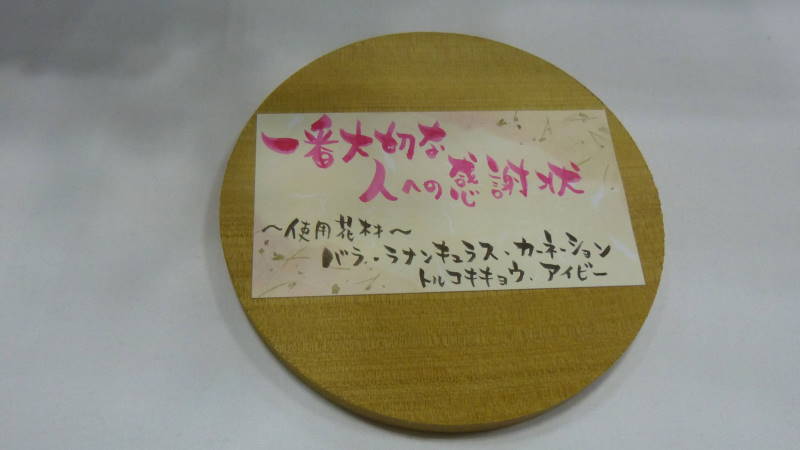 一番大切な
人への感謝状
～使用花材～
バラ・ラナンキュラス・カーネーション
トルコキキョウ・アイビー